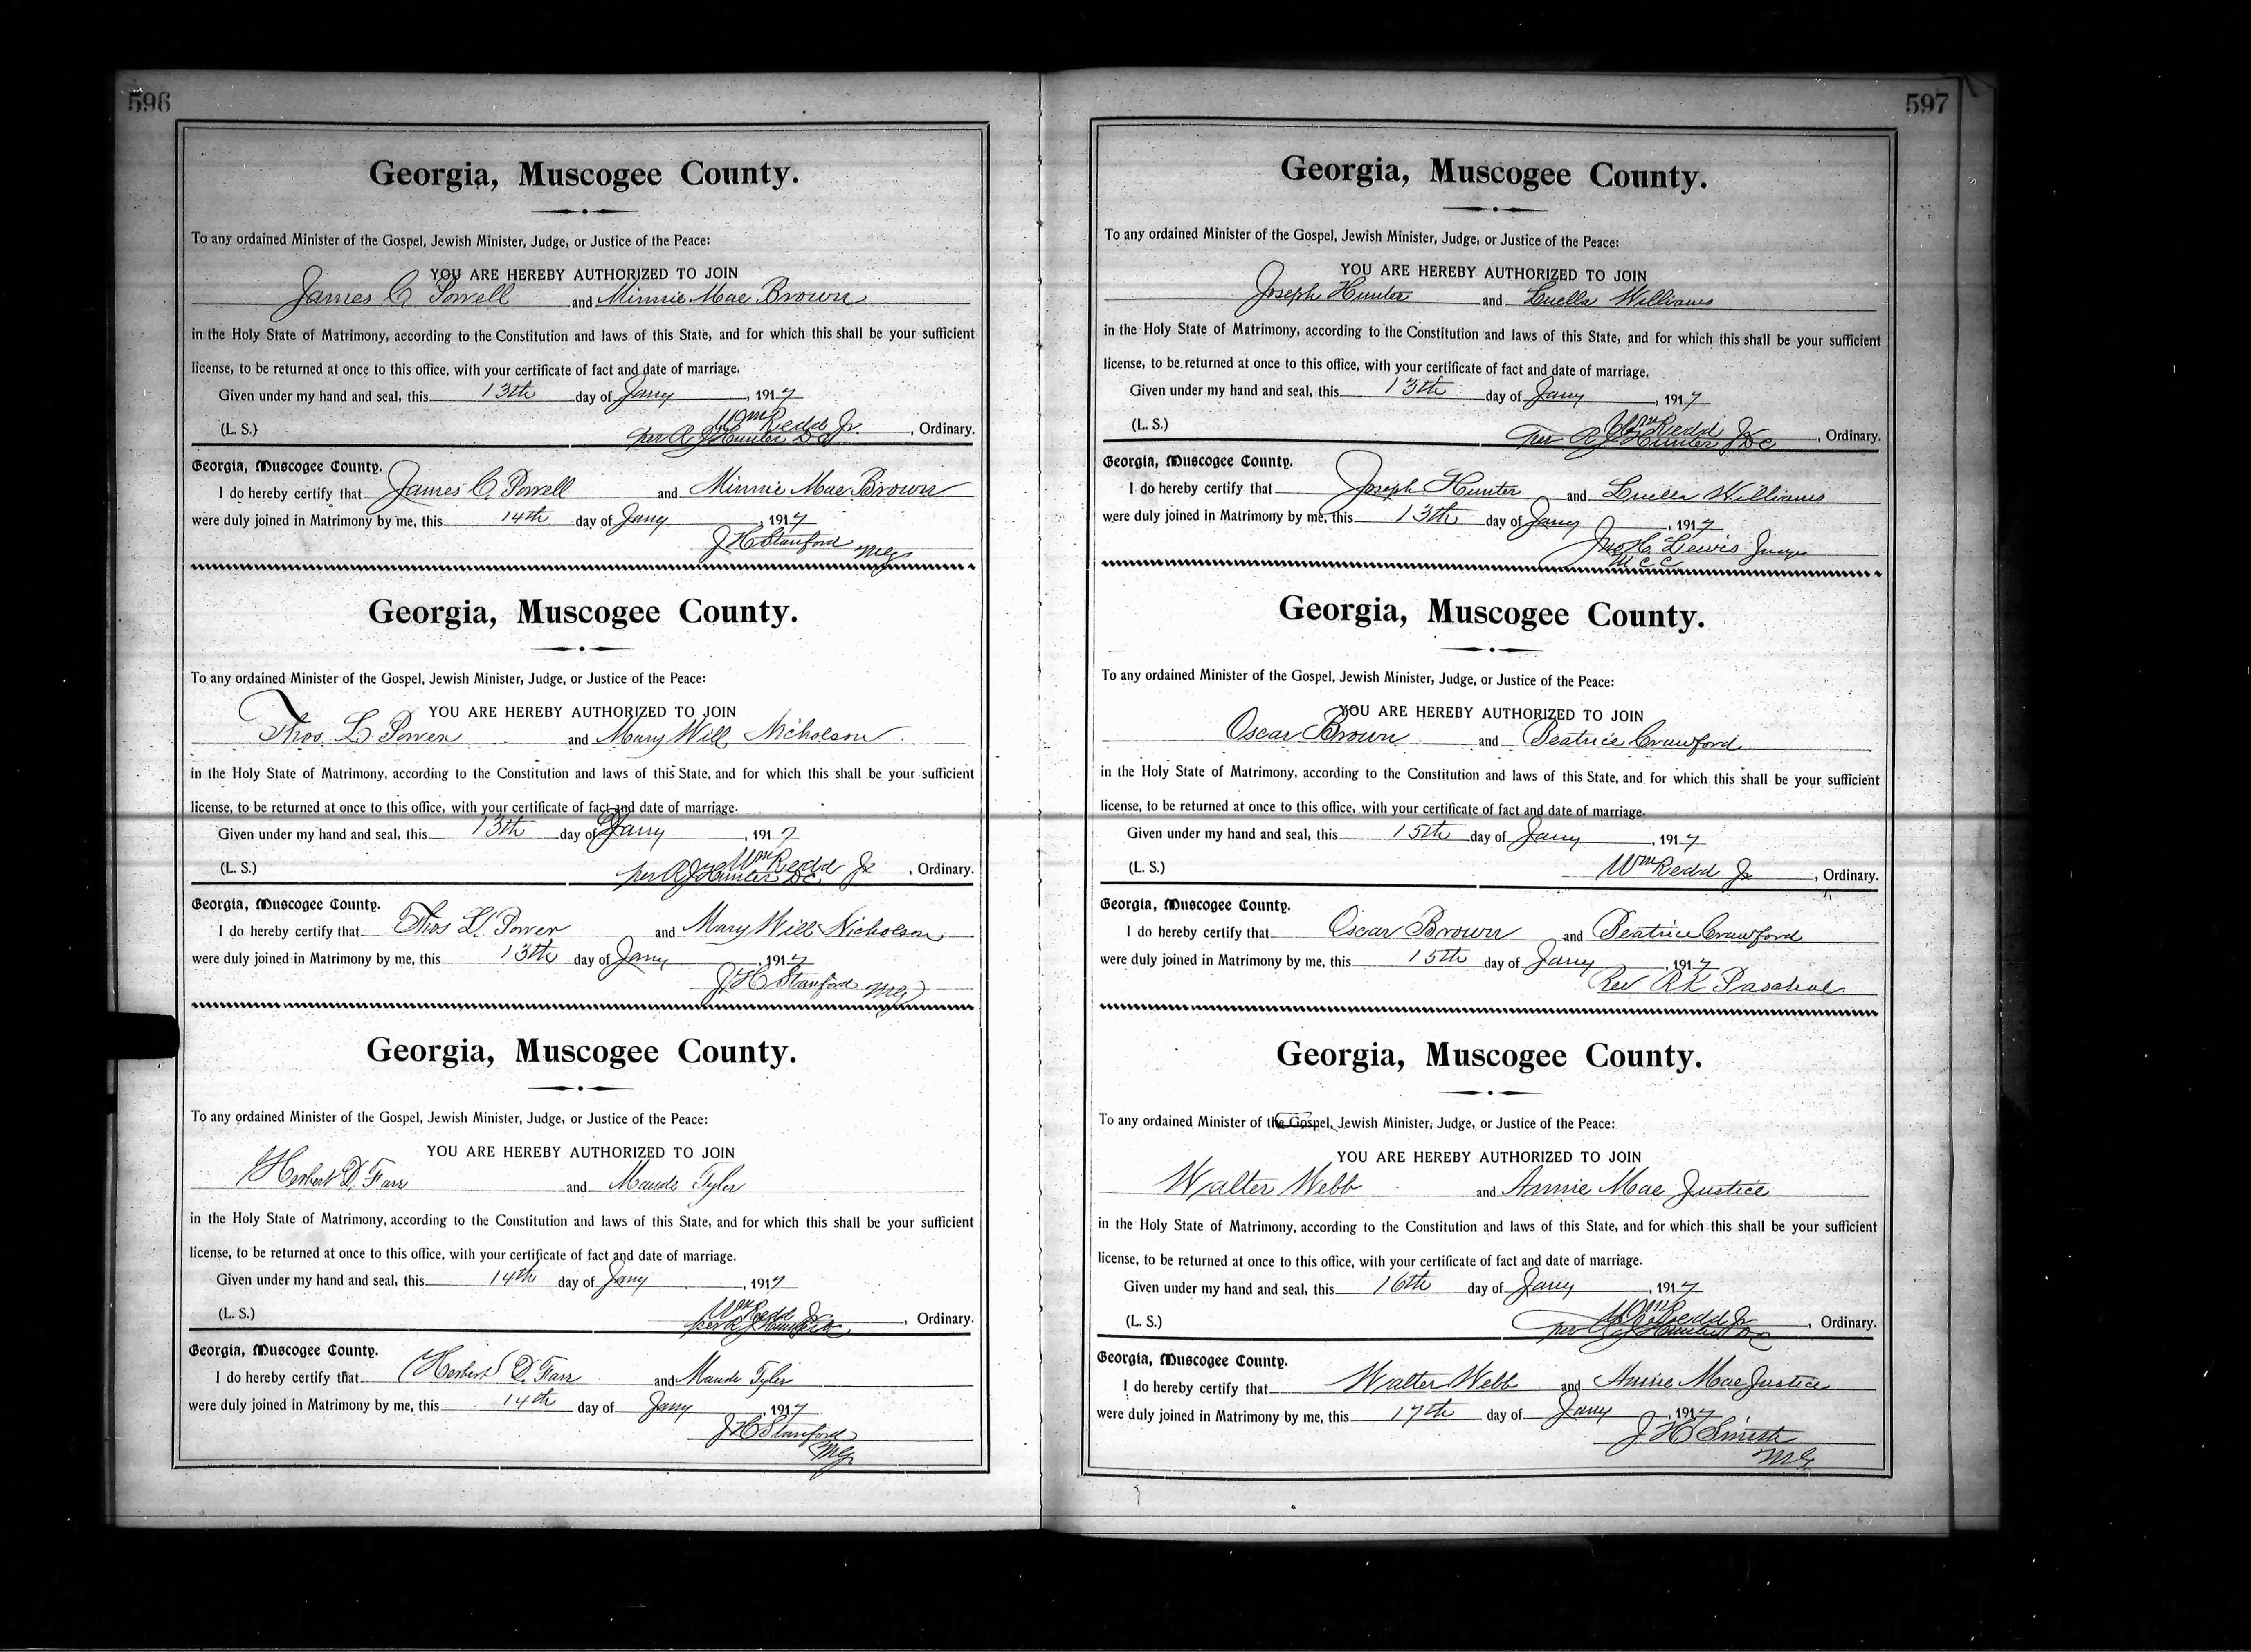 596
Georgia, Muscogee County.
To any ordained Minister of the Gospel, Jewish Minister, Judge, or Justice of the Peace:
YOU ARE HEREBY AUTHORIZED TO JOIN
James C. Powell and Minnie Mae Brown
in the Holy State of Matrimony, according to the Constitution and laws of this State, and for which this shall be your sufficient
license, to be returned at once to this office, with your certificate of fact and date of marriage.
Given under my hand and seal, this 13th day of Jany, 1917
Wm Redd Jr.
(L. S.) per R J Hunter D C, Ordinary.
Georgia, Muscogee County.
I do hereby certify that James C. Powell and Minnie Mae Brown
were duly joined in Matrimony by me, this 14th day of Jany, 1917
J H Stanford MG
Georgia, Muscogee County.
To any ordained Minister of the Gospel, Jewish Minister, Judge, or Justice of the Peace:
YOU ARE HEREBY AUTHORIZED TO JOIN
Thos. L. Power and Mary Will Nicholson
in the Holy State of Matrimony, according to the Constitution and laws of this State, and for which this shall be your sufficient
license, to be returned at once to this office, with your certificate of fact and date of marriage.
Given under my hand and seal, this 13th day of Jany, 1917
Wm Redd Jr
(L. S.) per R J Hunter D C, Ordinary.
Georgia, Muscogee County.
I do hereby certify that Thos L. Power and Mary Will Nicholson
were duly joined in Matrimony by me, this 13th day of Jany, 1917
J H Stanford MG
Georgia, Muscogee County.
To any ordained Minister of the Gospel, Jewish Minister, Judge, or Justice of the Peace:
YOU ARE HEREBY AUTHORIZED TO JOIN
Herbert D. Farr and Maude Tyler
in the Holy State of Matrimony, according to the Constitution and laws of this State, and for which this shall be your sufficient
license, to be returned at once to this office, with your certificate of fact and date of marriage.
Given under my hand and seal, this 14th day of Jany, 1917
Wm Redd Jr
(L. S.) per R J Hunter, Ordinary.
Georgia, Muscogee County.
I do hereby certify that Herbert D. Farr and Maude Tyler
were duly joined in Matrimony by me, this 14th day of Jany, 1917
J H Stanford
MG
597
Georgia, Muscogee County.
To any ordained Minister of the Gospel, Jewish Minister, Judge, or Justice of the Peace:
YOU ARE HEREBY AUTHORIZED TO JOIN
Joseph Hunter and Luella Williams
in the Holy State of Matrimony, according to the Constitution and laws of this State, and for which this shall be your sufficient
license, to be returned at once to this office, with your certificate of fact and date of marriage.
Given under my hand and seal, this 13th day of Jany, 1917
Wm Redd Jr
(L. S.) per R J Hunter D C, Ordinary.
Georgia, Muscogee County.
I do hereby certify that Joseph Hunter and Luella Williams
were duly joined in Matrimony by me, this 13th day of Jany, 1917
Jno. H. Lewis Judge
M C C
Georgia, Muscogee County.
To any ordained Minister of the Gospel, Jewish Minister, Judge, or Justice of the Peace:
YOU ARE HEREBY AUTHORIZED TO JOIN
Oscar Brown and Beatrice Crawford
in the Holy State of Matrimony, according to the Constitution and laws of this State, and for which this shall be your sufficient
license, to be returned at once to this office, with your certificate of fact and date of marriage.
Given under my hand and seal, this 15th day of Jany, 1917
(L. S.) Wm Redd Jr, Ordinary.
Georgia, Muscogee County.
I do hereby certify that Oscar Brown and Beatrice Crawford
were duly joined in Matrimony by me, this 15th day of Jany, 1917
Rev R K Paschal
Georgia, Muscogee County.
To any ordained Minister of the Gospel, Jewish Minister, Judge, or Justice of the Peace:
YOU ARE HEREBY AUTHORIZED TO JOIN
Walter Webb and Annie Mae Justice
in the Holy State of Matrimony, according to the Constitution and laws of this State, and for which this shall be your sufficient
license, to be returned at once to this office, with your certificate of fact and date of marriage.
Given under my hand and seal, this 16th day of Jany, 1917
Wm Redd Jr
(L. S.) per R J Hunter D C, Ordinary.
Georgia, Muscogee County.
I do hereby certify that Walter Webb and Annie Mae Justice
were duly joined in Matrimony by me, this 17th day of Jany, 1917
J H Smith
MG